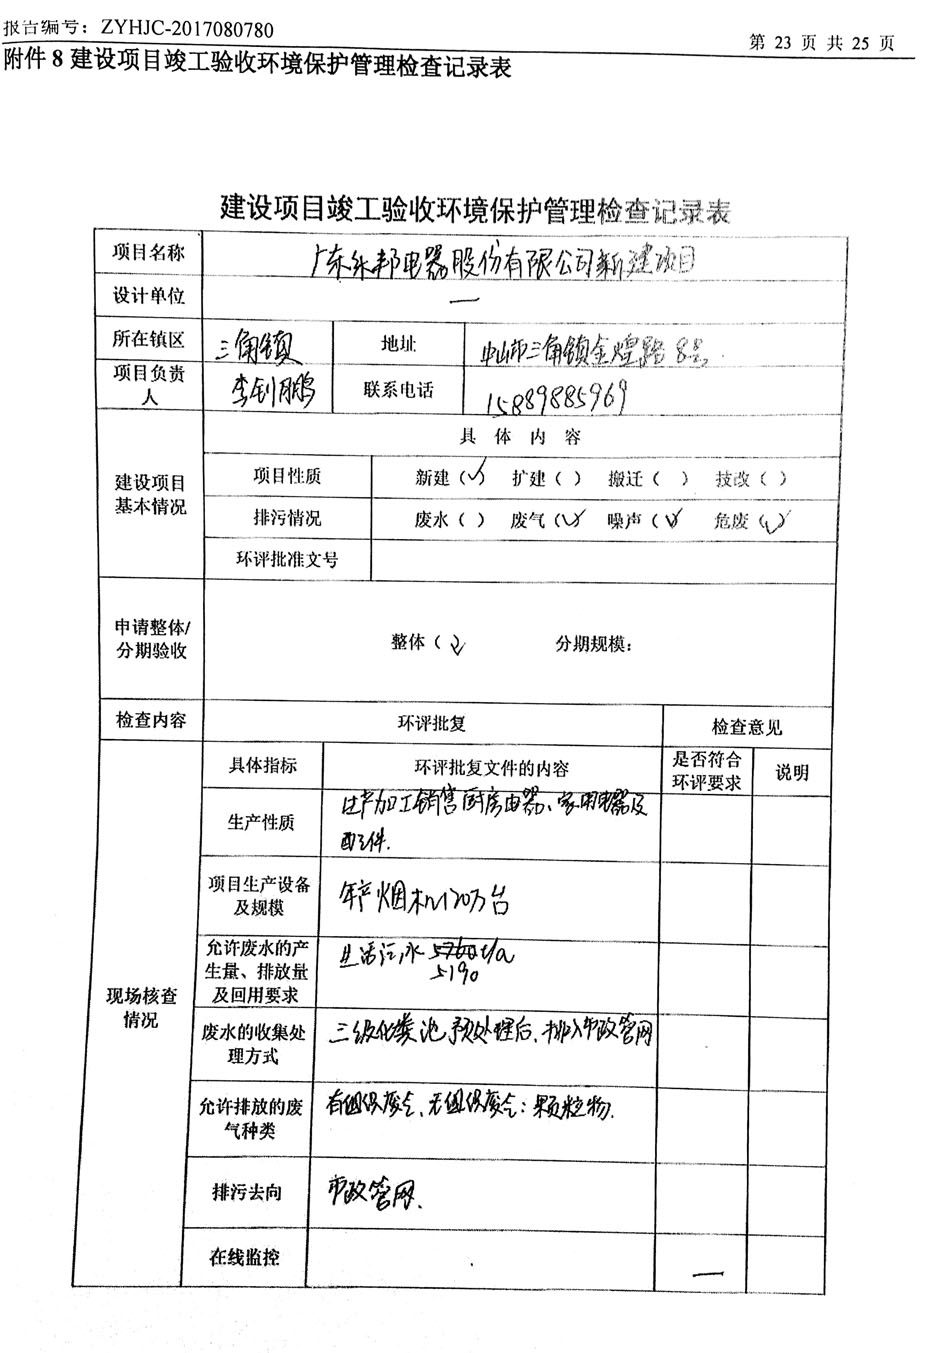 报告编号：ZYHJC-2017080780
第 23 页 共 25 页
附件 8 建设项目竣工验收环境保护管理检查记录表
建设项目竣工验收环境保护管理检查记录表
项目名称 广东乐邦电器股份有限公司新建项目
设计单位 一
所在镇区 三角镇 地址 中山市三角镇金煌路8号.
项目负责人 李钊鹏 联系电话 15889885969
建设项目基本情况 具 体 内 容
项目性质 新建（√） 扩建（ ） 搬迁（ ） 技改（ ）
排污情况 废水（ ） 废气（√） 噪声（√） 危废（√）
环评批准文号
申请整体/分期验收 整体（√） 分期规模：
检查内容 环评批复 检查意见
现场核查情况 具体指标 环评批复文件的内容 是否符合环评要求 说明
生产性质 生产加工销售厨房电器、家用电器及
配件.
项目生产设备及规模 年产烟机120万台
允许废水的产生量、排放量及回用要求 生活污水 5760t/a
5190
废水的收集处理方式 三级化粪池预处理后、排入市政管网
允许排放的废气种类 有组织废气、无组织废气：颗粒物.
排污去向 市政管网.
在线监控 一